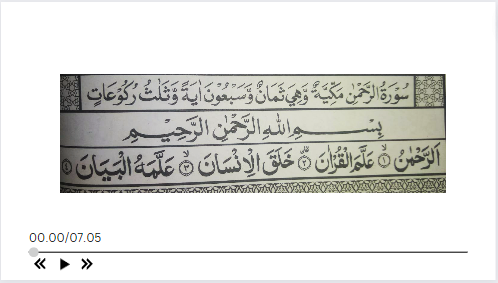 سُوْرَةُ الرَّحْمٰنِ مَكِّيَّةٌ وَّهِيَ ثَمَانٌ وَّسَبْعُوْنَ اٰيَةً وَّثَلٰثُ رُكُوْعَاتٍ
بِسْمِ اللّٰهِ الرَّحْمٰنِ الرَّحِيْمِ
اَلرَّحْمٰنُ ۙ﴿۱﴾ عَلَّمَ الْقُرْاٰنَ ؕ﴿۲﴾ خَلَقَ الْاِنْسَانَ ۙ﴿۳﴾ عَلَّمَهُ الْبَيَانَ ﴿۴﴾
00.00/07.05